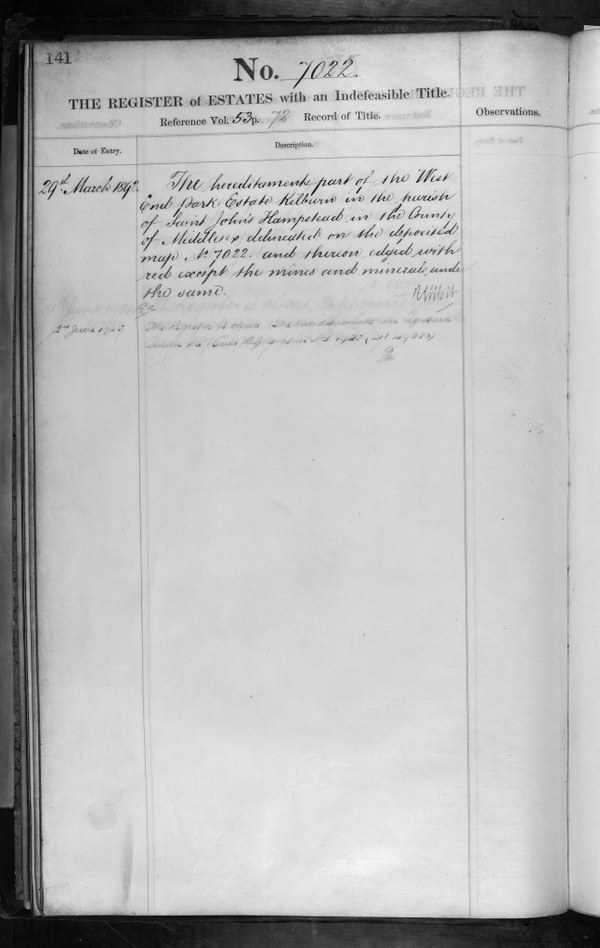 141
No. 7022.
THE REGISTER of ESTATES with an Indefeasible Title.
Reference Vol. 53 p. 72 Record of Title.
Observations.
Date of Entry.
Description.
29th March 189
The hereditaments part of the West
End Park Estate Kilburn in the parish
of Saint John's Hampstead in the County
of Middlesex delineated on the deposited
map No 7022 and thereon edged with
red except the mines and minerals under
the same.
2nd June 19
The Register is closed. The hereditaments are registered
under the Land Registration Act 1925